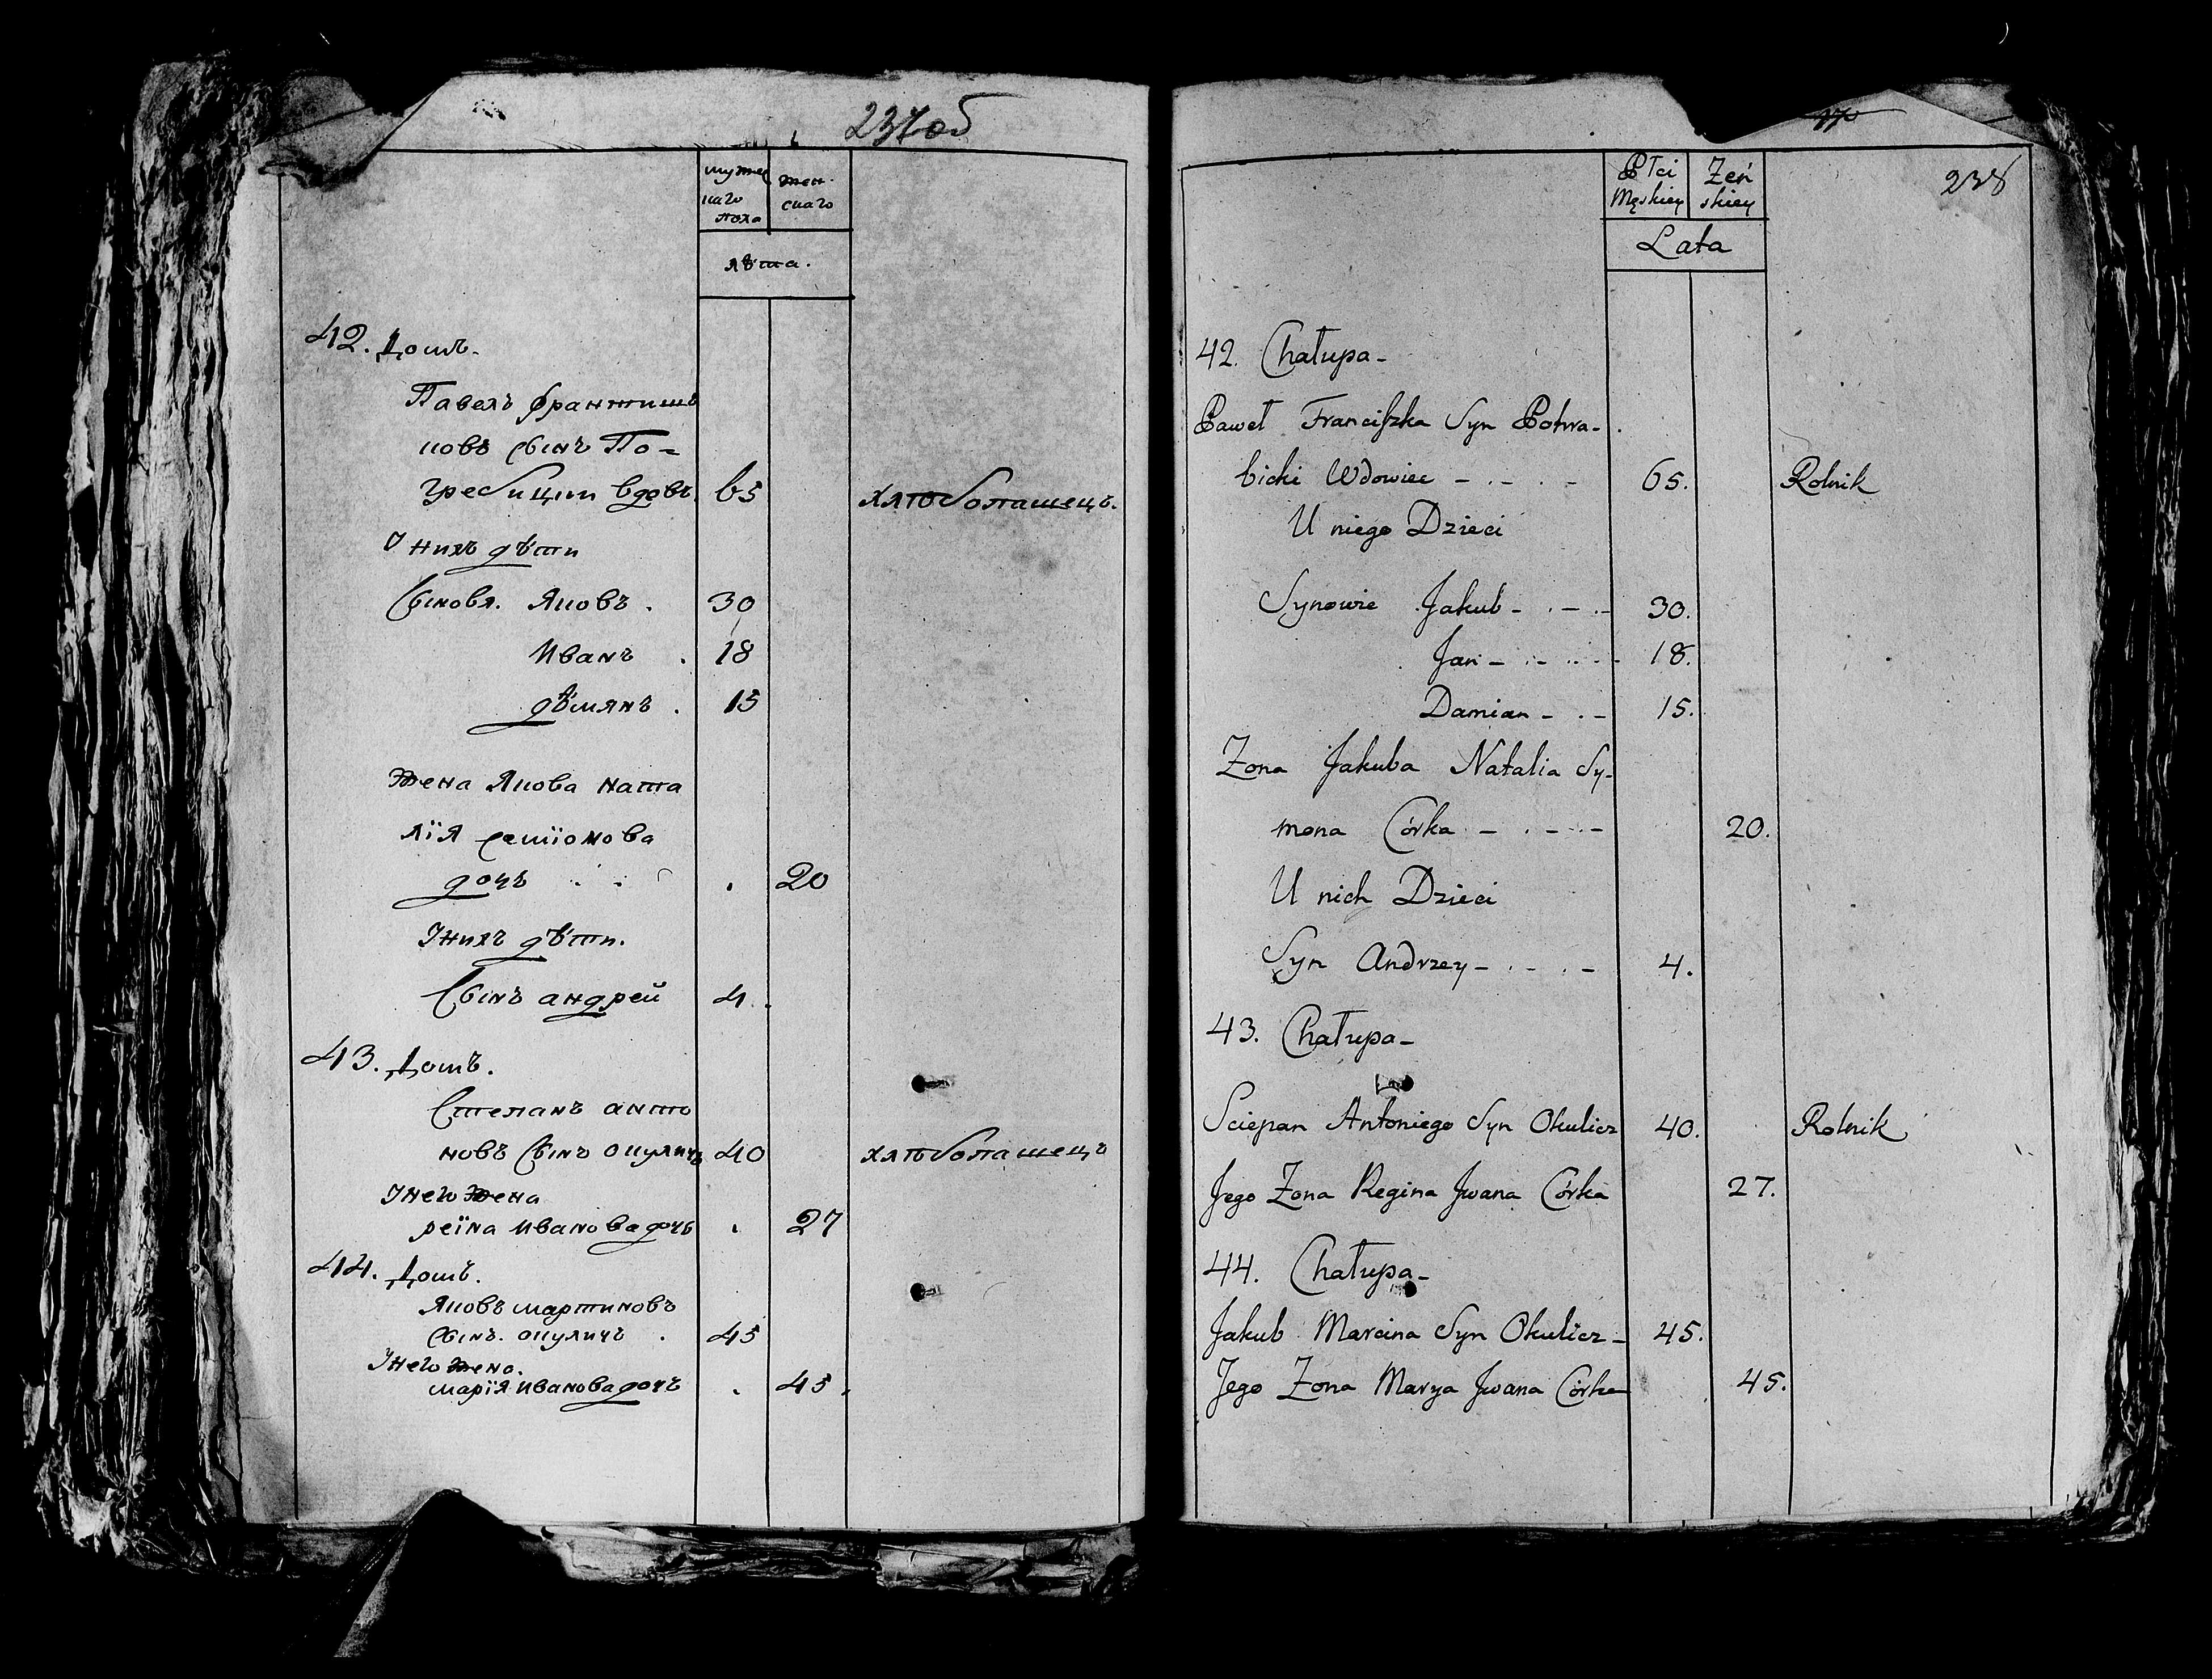 237об
мужес
каго
пола
жен-
скаго
лѣта.
42. Домъ.
Павелъ францишь
ковъ сынъ По=
гребицки вдовъ. 65 хлѣбопашецъ.
У нихъ дѣти
Сыновя. Яковъ . 30
Иванъ . 18
дѣмянъ . 15
жена Якова ната
лїя семїонова
дочъ . 20
У нихъ дѣти.
Сынъ андрей 4.
43. Домъ.
Степанъ анто
новъ сынъ окуличъ 40 хлѣбопашецъ
У него жена
реïна ивановa дочъ . 27
44. Домъ.
Яковъ мартиновъ
сынъ. окуличъ . 45
У него жена.
марїя иванова дочъ . 45.
238
Płci
Męskiey
Żeń
skiey
Lata
42. Chałupa -
Paweł Franciszka Syn Potwa-
bicki Wdowiec - . - . - 65. Rolnik
U niego Dzieci
Synowie Jakub - . - . - 30.
Jan - . - . . - 18.
Damian - . - 15.
Zona Jakuba Natalia Sy-
mona Córka - . - . - 20.
U nich Dzieci
Syn Andrzey - . - . - 4.
43. Chałupa -
Sciepan Antoniego Syn Okulicz 40. Rolnik
Jego Zona Regina Jwana Córka 27.
44. Chałupa -
Jakub Marcina Syn Okulicz - 45.
Jego Zona Marya Jwana Córka 45.